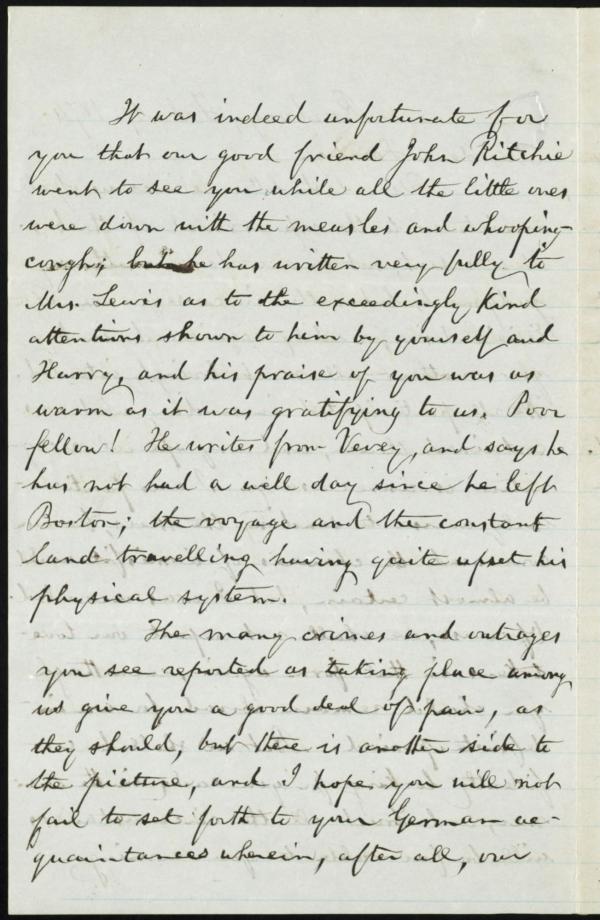 It was indeed unfortunate for
you that our good friend John Ritchie
went to see you while all the little ones
were down with the measles and whooping-
cough; but he has written very fully to
Mrs. Lewis as to the exceedingly kind
attentions shown to him by yourself and
Harry, and his praise of you was as
warm as it was gratifying to us. Poor
fellow! He writes from Vevey, and says he
has not had a well day since he left
Boston; the voyage and the constant
land travelling having quite upset his
physical system.
The many crimes and outrages
you see reported as taking place among
us give you a good deal of pain, as
they should, but there is another side to
the picture, and I hope you will not
fail to set forth to your German ac-
quaintances wherein, after all, our